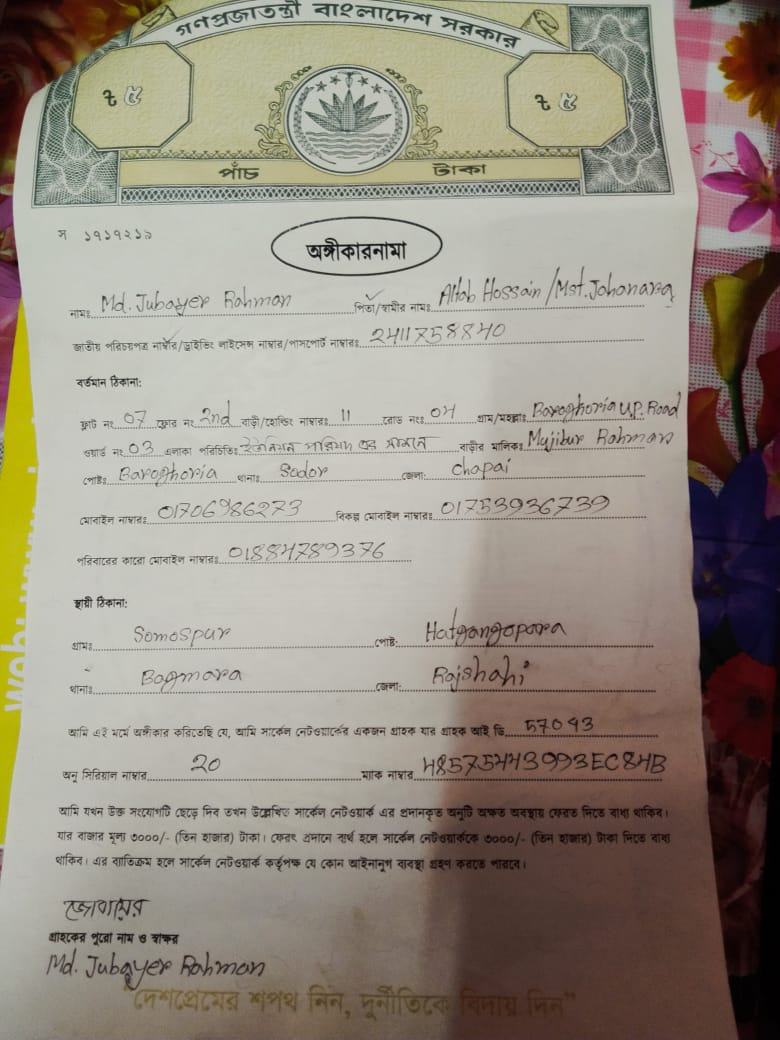 গণপ্রজাতন্ত্রী বাংলাদেশ সরকার
ট ৫ ট ৫
পাঁচ টাকা
স ১৭১৭২১৯
অঙ্গীকারনামা
নামঃ Md. Jubayer Rahman পিতা/স্বামীর নামঃ Altab Hossain /Mst. Jahanara
জাতীয় পরিচয়পত্র নাম্বার/ড্রাইভিং লাইসেন্স নাম্বার/পাসপোর্ট নাম্বারঃ 2411758840
বর্তমান ঠিকানা:
ফ্লাট নং 07 ফ্লোর নং 2nd বাড়ী/হোল্ডিং নাম্বারঃ 11 রোড নংঃ 04 গ্রাম/মহল্লাঃ Baroghoria U.P. Road
ওয়ার্ড নং 03 এলাকা পরিচিতিঃ ইউনিয়ন পরিষদ এর সামনে বাড়ীর মালিকঃ Mujibur Rahman
পোষ্টঃ Baroghoria থানাঃ Sodor জেলা: Chapai
মোবাইল নাম্বারঃ 01706986273 বিকল্প মোবাইল নাম্বারঃ 01753936739
পরিবারের কারো মোবাইল নাম্বারঃ 01884789376
স্থায়ী ঠিকানা:
গ্রামঃ Somospur পোষ্ট: Hatgangopara
থানাঃ Bagmara জেলা: Rajshahi
আমি এই মর্মে অঙ্গীকার করিতেছি যে, আমি সার্কেল নেটওয়ার্কের একজন গ্রাহক যার গ্রাহক আই ডি 57093
অনু সিরিয়াল নাম্বার 20 ম্যাক নাম্বার 48575443993EC84B
আমি যখন উক্ত সংযোগটি ছেড়ে দিব তখন উল্লেখিত সার্কেল নেটওয়ার্ক এর প্রদানকৃত অনুটি অক্ষত অবস্থায় ফেরত দিতে বাধ্য থাকিব।
যার বাজার মূল্য ৩০০০/- (তিন হাজার) টাকা। ফেরৎ প্রদানে ব্যর্থ হলে সার্কেল নেটওয়ার্ককে ৩০০০/- (তিন হাজার) টাকা দিতে বাধ্য
থাকিব। এর ব্যাতিক্রম হলে সার্কেল নেটওয়ার্ক কর্তৃপক্ষ যে কোন আইনানুগ ব্যবস্থা গ্রহণ করতে পারবে।
জোবায়ের
গ্রাহকের পুরো নাম ও স্বাক্ষর
Md. Jubayer Rahman
"দেশপ্রেমের শপথ নিন, দুর্নীতিকে বিদায় দিন"